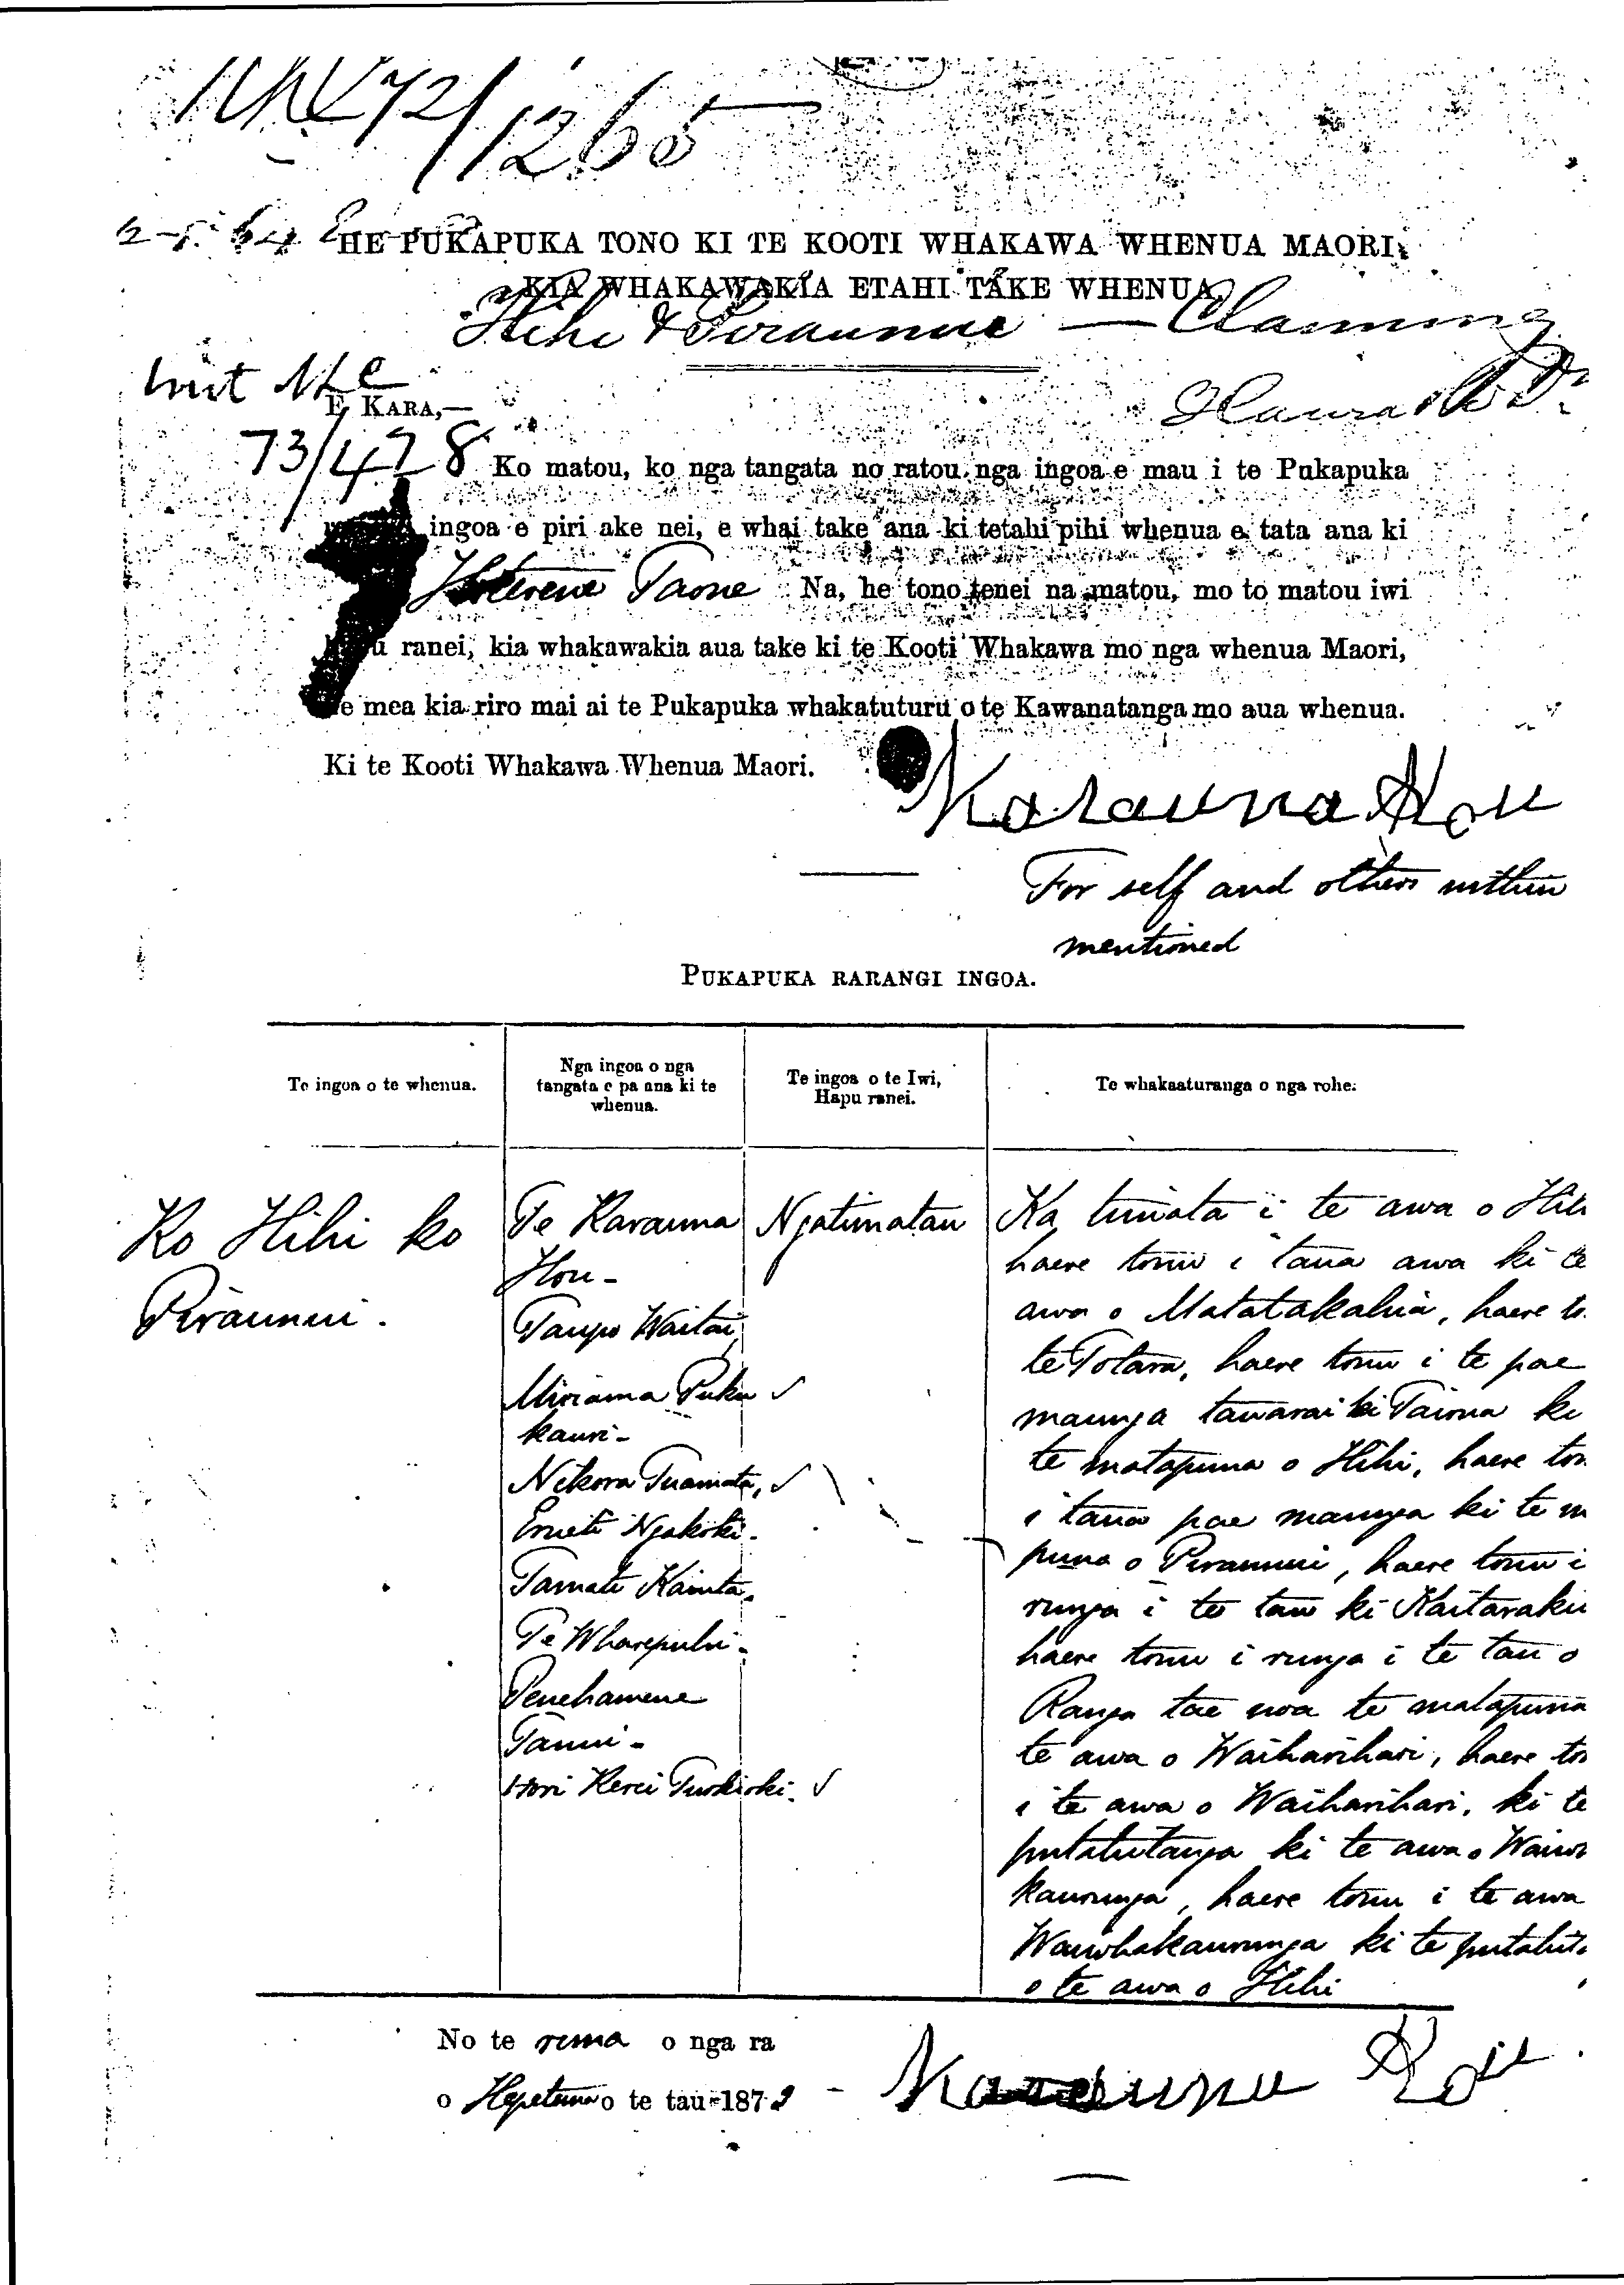 72/1265
HE PUKAPUKA TONO KI TE KOOTI WHAKAWA WHENUA MAORI,
KIA WHAKAWAKIA ETAHI TAKE WHENUA.
Hihi & Piraunui — Claiming
Hauraki Dt
E KARA,—
73/428
Ko matou, ko nga tangata no ratou nga ingoa e mau i te Pukapuka
ingoa e piri ake nei, e whai take ana ki tetahi pihi whenua e tata ana ki
Taone Na, he tono tenei na matou, mo to matou iwi
ranei, kia whakawakia aua take ki te Kooti Whakawa mo nga whenua Maori,
mea kia riro mai ai te Pukapuka whakatuturu o te Kawanatanga mo aua whenua.
Ki te Kooti Whakawa Whenua Maori.
Karauna Hou
For self and others within
mentioned
PUKAPUKA RARANGI INGOA.
Te ingoa o te whenua.
Nga ingoa o nga
tangata e pa ana ki te
whenua.
Te ingoa o te Iwi,
Hapu ranei.
Te whakaaturanga o nga rohe.
Ko Hihi ko
Piraunui.
Te Karauna
Hou -
Taupo Waitai,
Miriama Puku
kauri -
Nikora Tuamata,
Erueti Ngakoti.
Tamati Kaiuta.
Te Wharepuhi -
Penehamene
Tanui -
Hori Kerei Tuokioki.
Ngatimatau
Ka timata i te awa o Hihi
haere tonu i taua awa ki te
awa o Matatakahia, haere to
te Totara, haere tonu i te pae
maunga tauarai ki Tairua ki
te matapuna o Hihi, haere ton
i taua pae maunga ki te m
puna o Piraunui, haere tonu i
runga i te tau ki Kaitarakihi
haere tonu i runga i te tau o
Ranga tae noa te matapuna
te awa o Waiharihari, haere ton
i te awa o Waiharihari, ki te
putahitanga ki te awa o Waiwh
kaurunga, haere tonu i te awa
Waiwhakaurunga ki te putahita
o te awa o Hihi
No te rima o nga ra
o Hepetema o te tau 1872
Karauna Hou